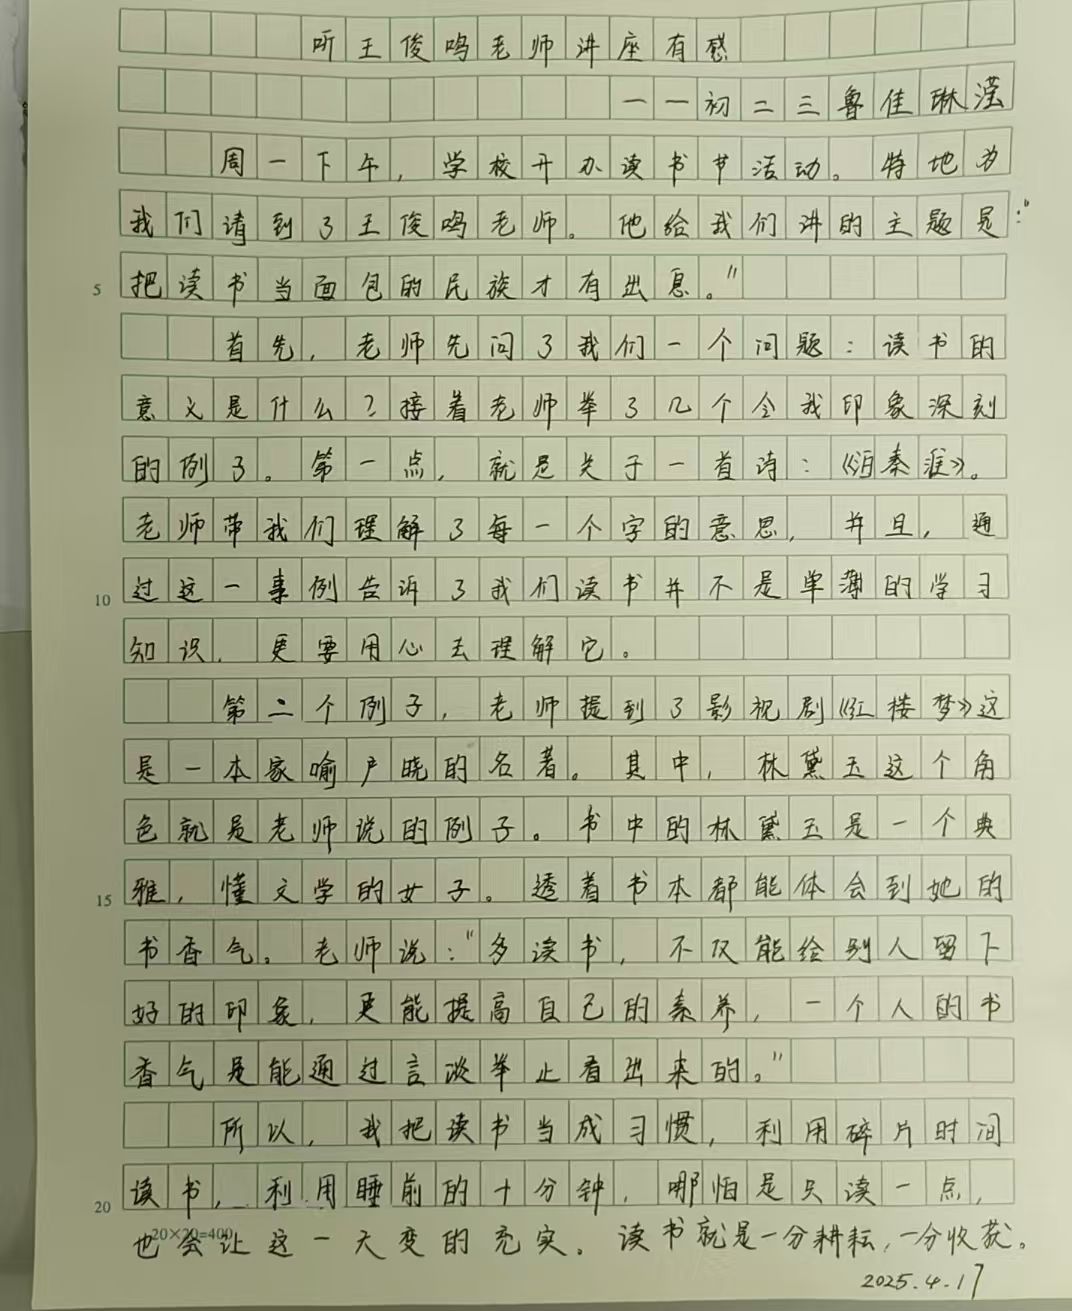 听王俊鸣老师讲座有感
——初二三鲁佳琳滢
周一下午，学校开办读书节活动。特地为
我们请到了王俊鸣老师。他给我们讲的主题是：“
5 把读书当面包的民族才有出息。”
首先，老师先问了我们一个问题：读书的
意义是什么？接着老师举了几个令我印象深刻
的例子。第一点，就是关于一首诗：《泊秦淮》。
老师带我们理解了每一个字的意思，并且，通
10 过这一事例告诉了我们读书并不是单薄的学习
知识，更要用心去理解它。
第二个例子，老师提到了影视剧《红楼梦》这
是一本家喻户晓的名著。其中，林黛玉这个角
色就是老师说的例子。书中的林黛玉是一个典
15 雅，懂文学的女子。透着书本都能体会到她的
书香气。老师说：“多读书，不仅能给别人留下
好的印象，更能提高自己的素养，一个人的书
香气是能通过言谈举止看出来的。”
所以，我把读书当成习惯，利用碎片时间
20 读书，利用睡前的十分钟，哪怕是只读一点，
20×20=400
也会让这一天变的充实。读书就是一分耕耘，一分收获。
2025.4.17